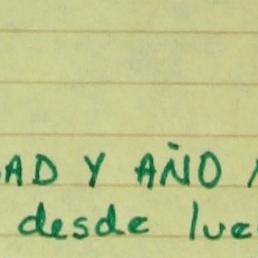 AD Y AÑO
desde lue